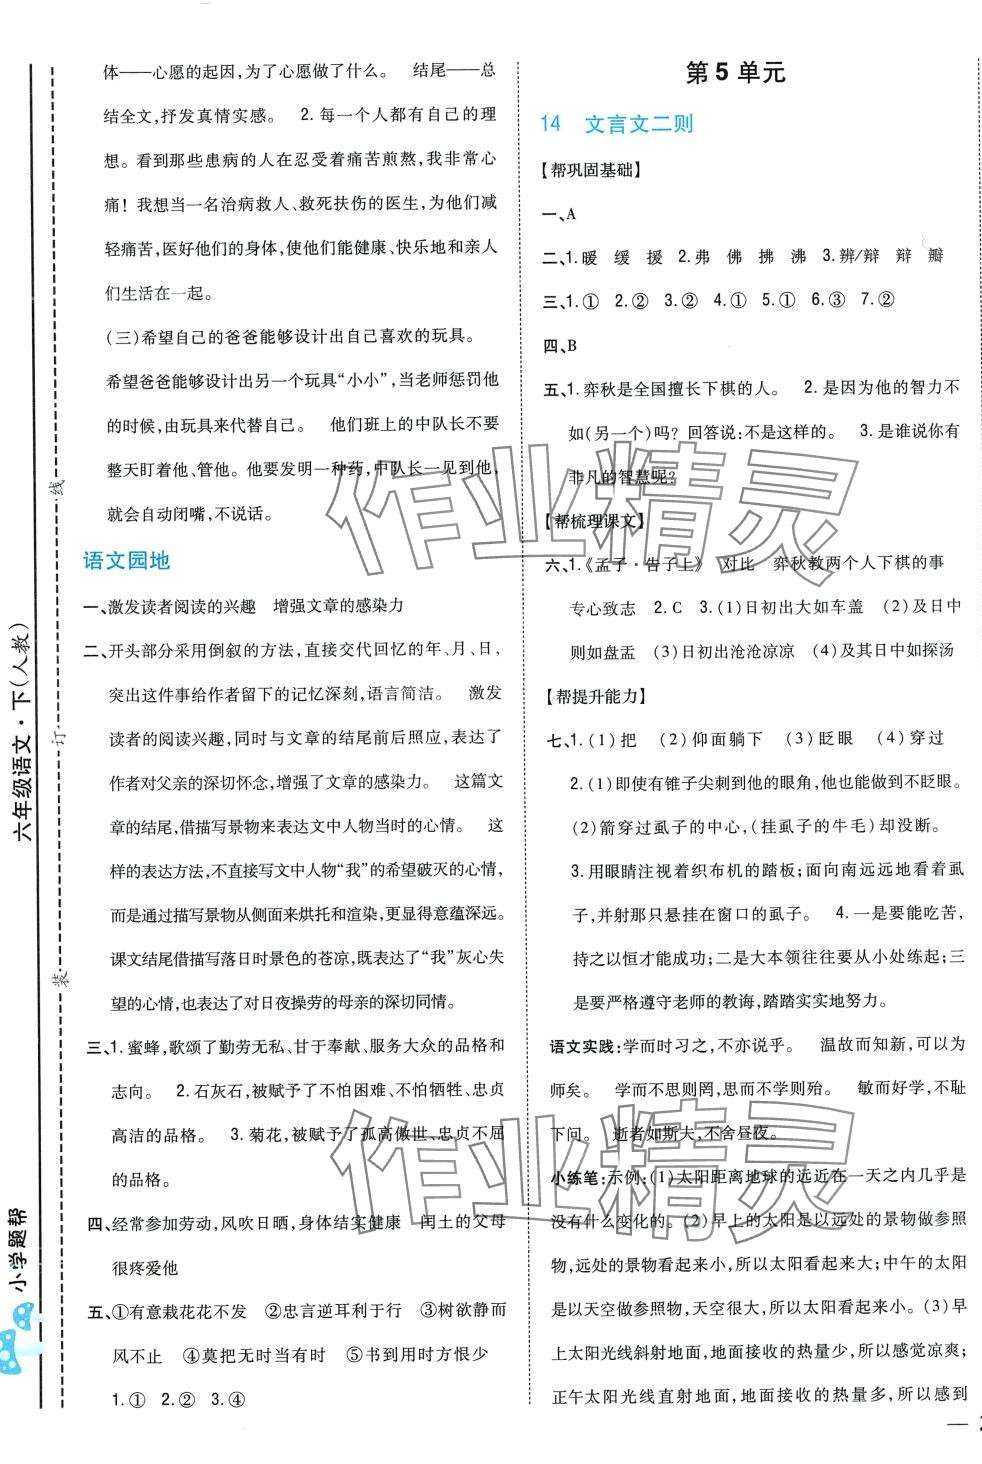 体——心愿的起因,为了心愿做了什么。 结尾——总
结全文,抒发真情实感。 2.每一个人都有自己的理
想。看到那些患病的人在忍受着痛苦煎熬,我非常心
痛!我想当一名治病救人、救死扶伤的医生,为他们减
轻痛苦,医好他们的身体,使他们能健康、快乐地和亲人
们生活在一起。
(三)希望自己的爸爸能够设计出自己喜欢的玩具。
希望爸爸能够设计出另一个玩具“小小”,当老师惩罚他
的时候,由玩具来代替自己。 他们班上的中队长不要
整天盯着他、管他。他要发明一种药,中队长一见到他,
就会自动闭嘴,不说话。
语文园地
一、激发读者阅读的兴趣 增强文章的感染力
二、开头部分采用倒叙的方法,直接交代回忆的年、月、日,
突出这件事给作者留下的记忆深刻,语言简洁。 激发
读者的阅读兴趣,同时与文章的结尾前后照应,表达了
作者对父亲的深切怀念,增强了文章的感染力。 这篇文
章的结尾,借描写景物来表达文中人物当时的心情。 这
样的表达方法,不直接写文中人物“我”的希望破灭的心情,
而是通过描写景物从侧面来烘托和渲染,更显得意蕴深远。
课文结尾借描写落日时景色的苍凉,反映了“我”灰心失
望的心情,也表达了对日夜操劳的母亲的深切同情。
三、1.蜜蜂,歌颂了勤劳无私、甘于奉献、服务大众的品格和
志向。 2.石灰石,被赋予了不怕困难、不怕牺牲、忠贞
高洁的品格。 3.菊花,被赋予了孤高傲世、忠贞不屈
的品格。
四、经常参加劳动,风吹日晒,身体结实健康 闰土的父母
很疼爱他
五、①有意栽花花不发 ②忠言逆耳利于行 ③树欲静而
风不止 ④莫把无时当有时 ⑤书到用时方恨少
1.① 2.② 3.④
第5单元
14 文言文二则
【帮巩固基础】
一、A
二、1.暖 缓 援 2.弗 佛 拂 沸 3.辨/辩 辩 瓣
三、1.① 2.② 3.② 4.① 5.① 6.③ 7.②
四、B
五、1.弈秋是全国擅长下棋的人。 2.是因为他的智力不
如(另一个)吗?回答说:不是这样的。 3.是谁说你有
非凡的智慧呢?
【帮梳理课文】
六、1.《孟子·告子上》 对比 弈秋教两个人下棋的事
专心致志 2.C 3.(1)日初出大如车盖 (2)及日中
则如盘盂 (3)日初出沧沧凉凉 (4)及其日中如探汤
【帮提升能力】
七、1.(1)把 (2)仰面躺下 (3)眨眼 (4)穿过
2.(1)即使有锥子尖刺到他的眼角,他也能做到不眨眼。
(2)箭穿过虱子的中心,(挂虱子的牛毛)却没断。
3.用眼睛注视着织布机的踏板;面向南远远地看着虱
子,并射那只悬挂在窗口的虱子。 4.一是要能吃苦,
持之以恒才能成功;二是大本领往往要从小处练起;三
是要严格遵守老师的教诲,踏踏实实地努力。
语文实践:学而时习之,不亦说乎。 温故而知新,可以为
师矣。 学而不思则罔,思而不学则殆。 敏而好学,不耻
下问。 逝者如斯夫,不舍昼夜。
小练笔:示例:(1)太阳距离地球的远近在一天之内几乎是
没有什么变化的。(2)早上的太阳是以远处的景物做参照
物,远处的景物看着小,所以太阳看起来大;中午的太阳
是以天空做参照物,天空很大,所以太阳看起来小。(3)早
上太阳光线斜射地面,地面接收的热量少,所以感觉凉爽;
正午太阳光线直射地面,地面接收的热量多,所以感到
六年级语文·下(人教)
小学题帮
装
订
线
作业精灵
作业精灵